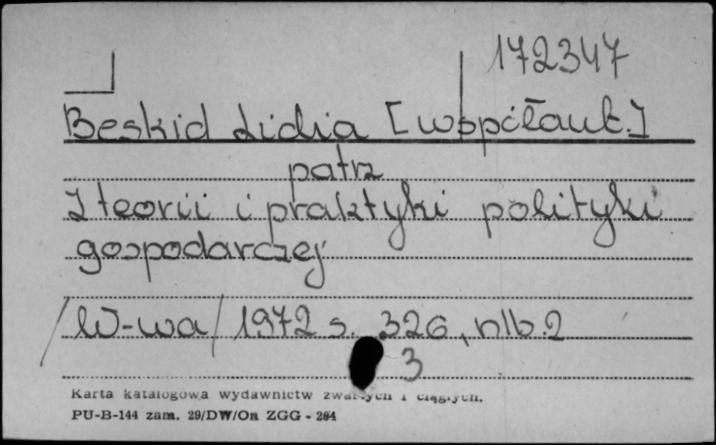 172347
Beskid Lidia [współaut.]
patrz
Z teorii i praktyki polityki
gospodarczej
/W-wa/ 1972 s. 326, nlb. 2
3
Karta katalogowa wydawnictw zwartych i ciągłych.
PU-B-144 zam. 29/DW/On ZGG - 264